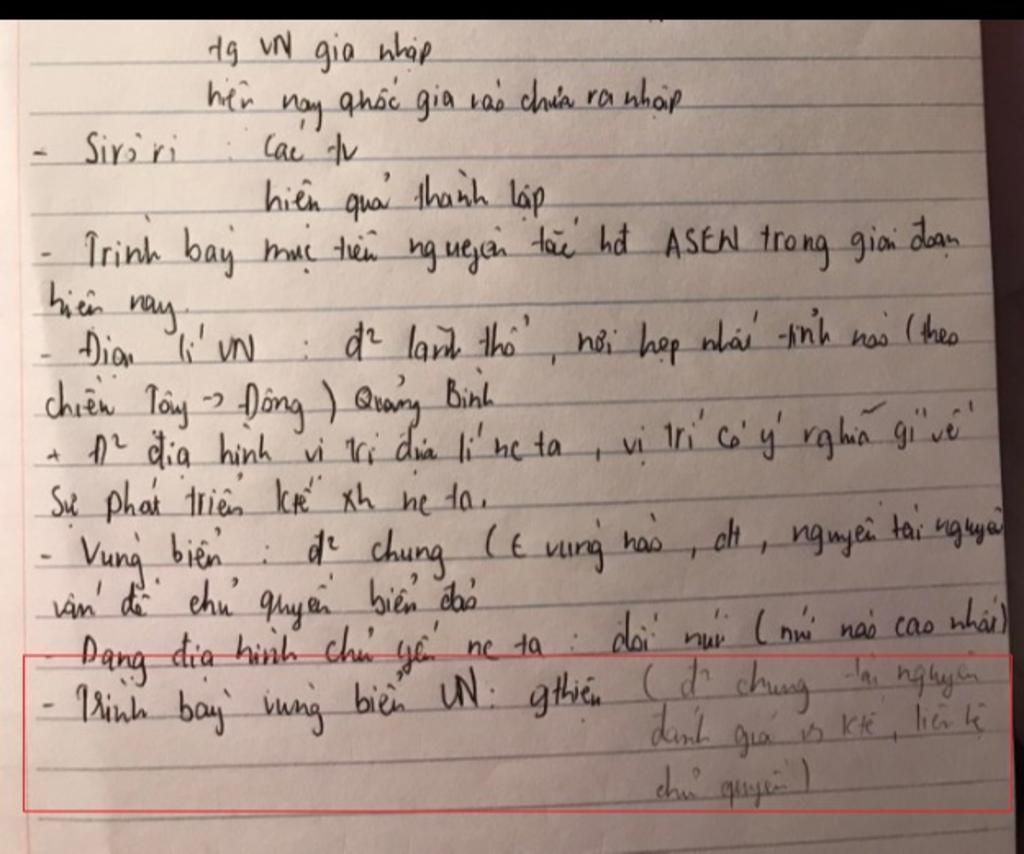 tg VN gia nhập
hiện nay quốc gia nào chưa ra nhập
- Sirô ri : Các tv
hiên quả thành lập
- Trình bày mục tiên nguyên tắc hđ ASEN trong giai đoạn
hiên nay.
- Địa lí VN : đ² lãnh thổ, nơi hẹp nhất tỉnh nào (theo
chiền Tây -> Đông) Quảng Bình
+ Đ² địa hình vị trí địa lí nc ta, vị trí có ý nghĩa gì về
Sự phát triển ktế xh nc ta.
- Vùng biển : đ² chung ( € vùng nào, dt, nguyên tài nguyên
vấn đề chủ quyền biển đảo
- Dạng địa hình chủ yế nc ta : dồi núi (núi nào cao nhất)
- Trình bày vùng biển VN: gthiện (đ² chung tài nguyên
đánh giá ktế, liên hệ
chủ quyền)